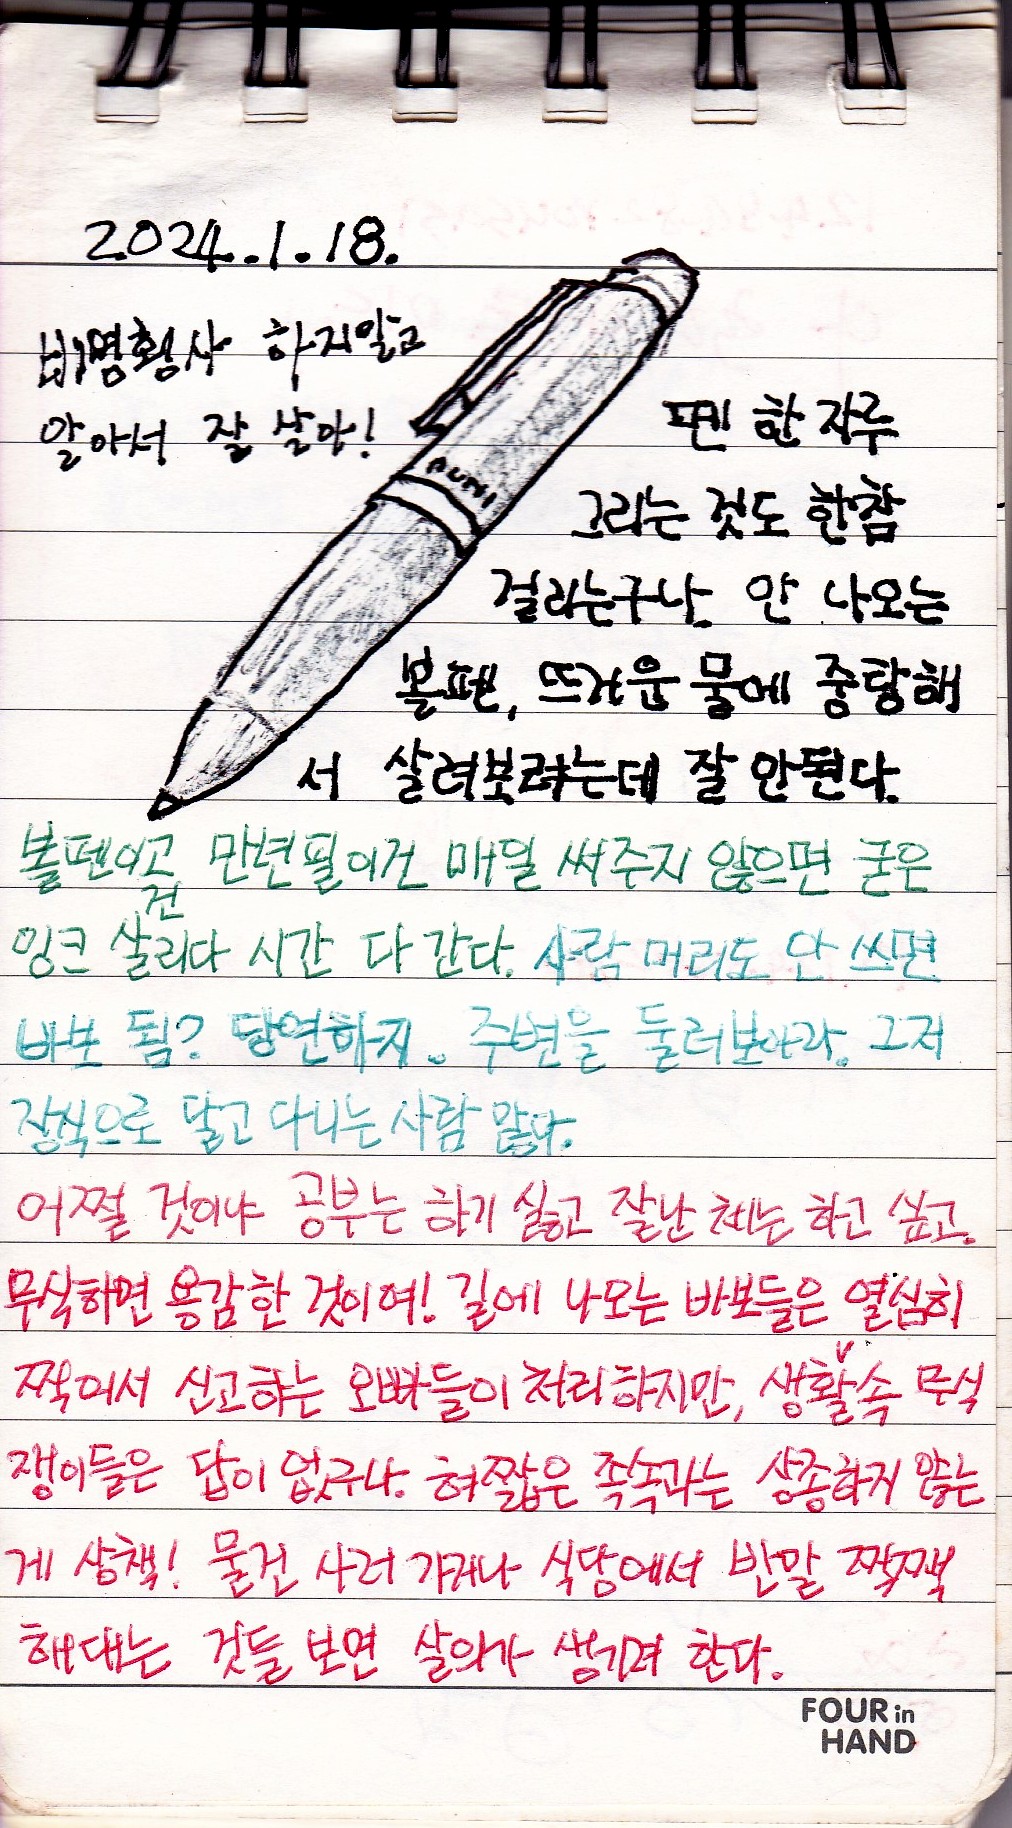 2024.1.18.
비명횡사 하지말고
알아서 잘 살아!
펜 한 자루
그리는 것도 한참
걸리는구나. 안 나오는
볼펜, 뜨거운 물에 중탕해
서 살려보려는데 잘 안된다.
볼펜이고 만년필이건 매일 써주지 않으면 굳은
건
잉크 살리다 시간 다 간다. 사람 머리도 안 쓰면
바보 됨? 당연하지. 주변을 둘러보아라. 그저
장식으로 달고 다니는 사람 많다.
어쩔 것이냐 공부는 하기 싫고 잘난 체는 하고 싶고.
무식하면 용감한 것이여! 길에 나오는 바보들은 열심히
찍어서 신고하는 오빠들이 처리하지만, 생활속 무식
쟁이들은 답이 없구나. 혀짧은 족속과는 상종하지 않는
게 상책! 물건 사러 가거나 식당에서 반말 찍찍
해대는 것들 보면 살의가 생기려 한다.
FOUR in
HAND